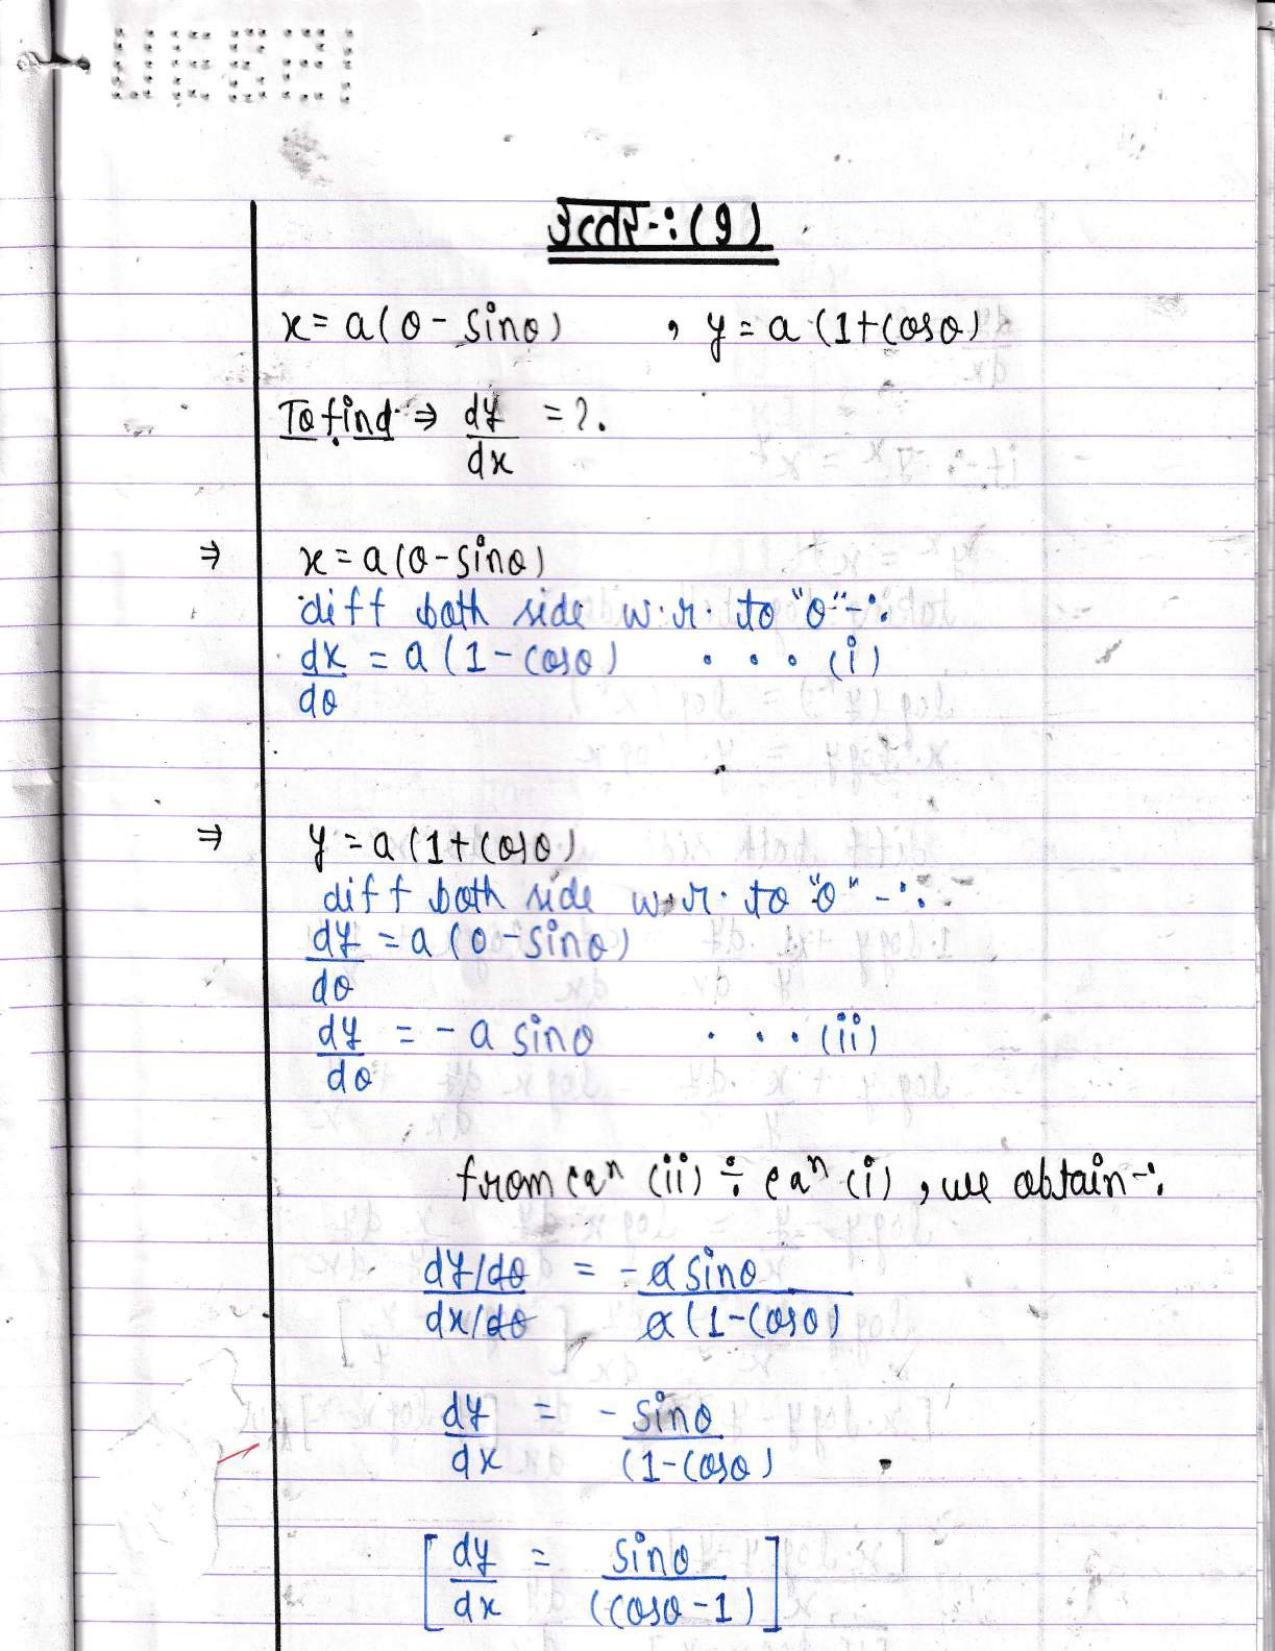 उत्तर-:(9)
x = a(θ - sinθ) , y = a(1+cosθ)
To find ⇒ dy/dx = ?.
⇒ x = a(θ-sinθ)
diff both side w.r. to "θ"-:
dx/dθ = a(1-cosθ) ...(i)
⇒ y = a(1+cosθ)
diff both side w.r. to "θ"-:
dy/dθ = a(0-sinθ)
dy/dθ = -a sinθ ...(ii)
from eqⁿ (ii) ÷ eqⁿ (i), we obtain-:
(dy/dθ)/(dx/dθ) = -a sinθ/a(1-cosθ)
dy/dx = -sinθ/(1-cosθ)
[dy/dx = sinθ/(cosθ-1)]